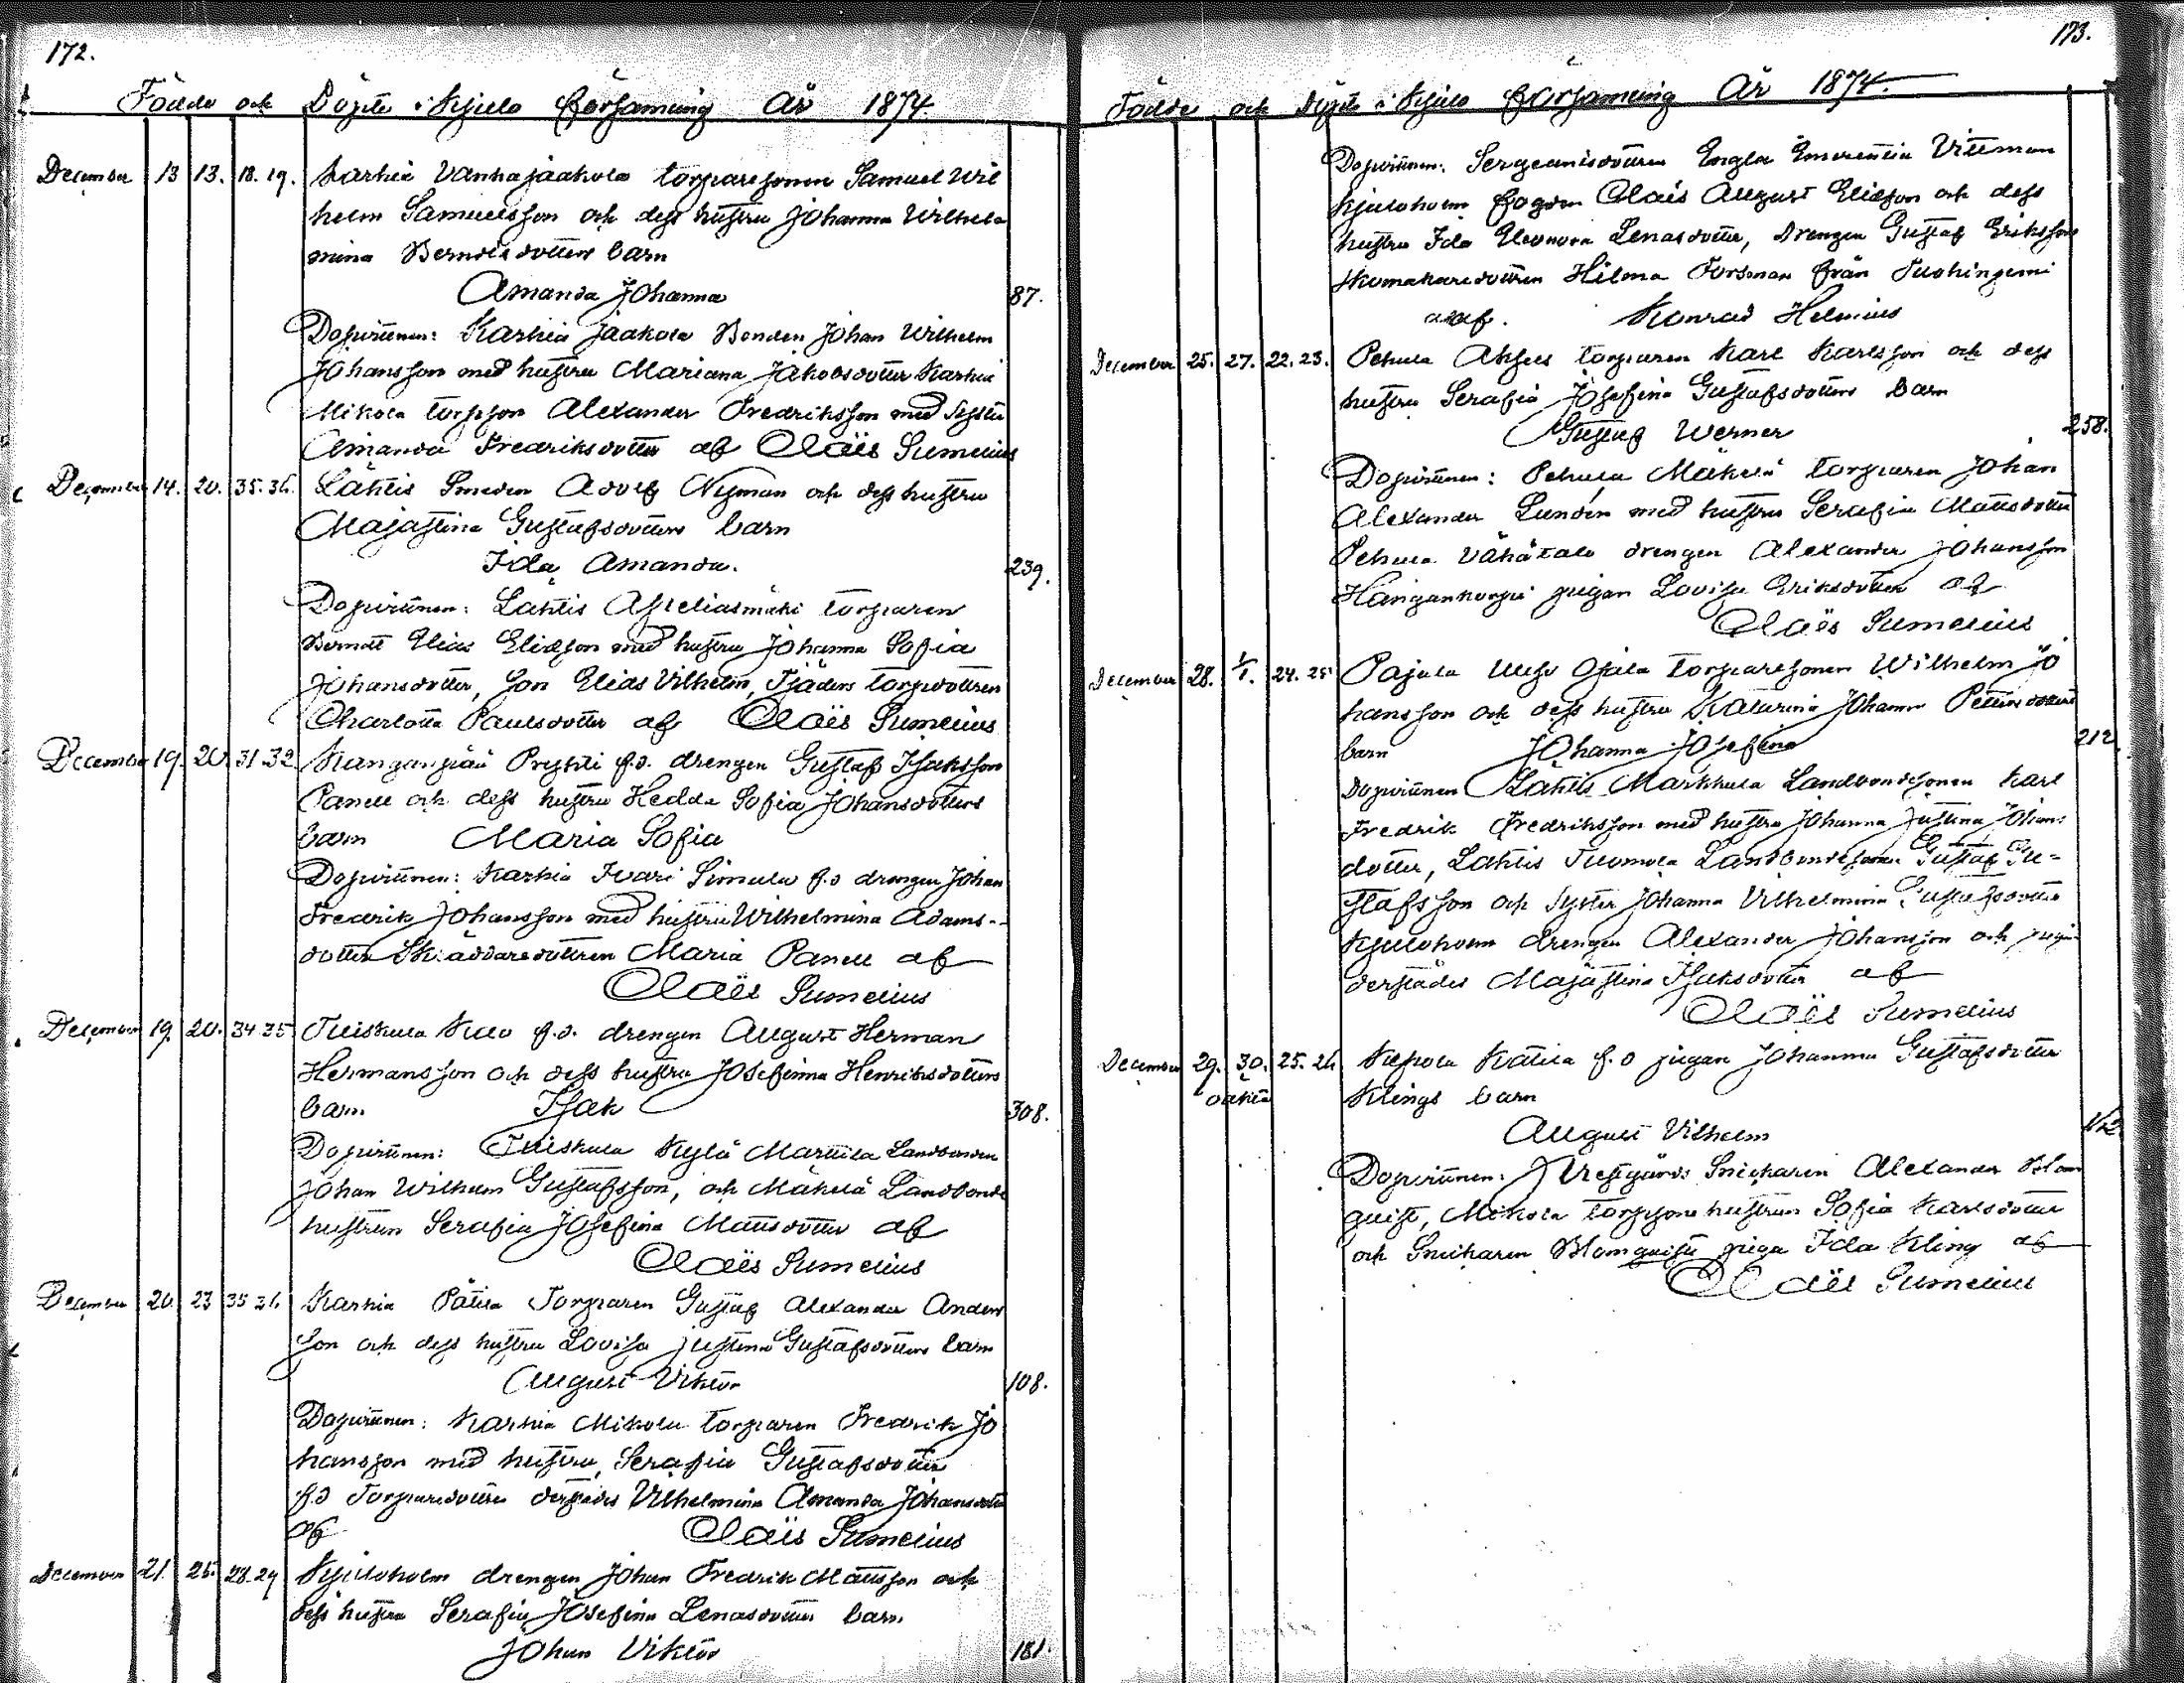 172.
Födde och Döpte i Kjulo församling År 1874.
December 13 13. 18. 19. Karhia Vanhajaakola torparesonen Samuel Wil
helm Samuelsson och dess hustru Johanna Wilhela
mina Berndtsdotters barn
Amanda Johanna 87.
Dopvittnen: Karhia Jaakola Bonden Johan Wilhelm
Johansson med hustru Mariana Jakobsdotter Karhia
Mikola torpson Alexander Fredriksson med syster
Amanda Fredriksdotter af Claës Sumelius
December 14. 20. 35. 36. Lähtis Smeden Adolf Nyman och dess hustru
Majastina Gustafsdotters barn
Ida Amanda. 239.
Dopvittnen: Lähtis torparen
Berndt Elias Eliasson med hustru Johanna Sofia
Johansdotter, Son Elias Vilhelm, Tjäders torpdottren
Charlotta Paulsdotter af Claës Sumelius
December 19. 20. 31. 32 Kanganpää Prysti f.d. drengen Gustaf Isaksson
Paneli och dess hustru Hedda Sofia Johansdotters
barn Maria Sofia
Dopvittnen: Karhia Ivari Simula f.d drengen Johan
Fredrik Johansson med hustru Wilhelmina Adams-
dotter Skräddaredottren Maria Paneli af
Claës Sumelius
December 19. 20. 34 35 Tuiskula Kulo f.d. drengen August Herman
Hermansson och dess hustru Josefinna Henriksdotters
barn Isak 308.
Dopvittnen: Tuiskula Kylä Marttila Landbonden
Johan Wilhelm Gustafsson, och Mäkelä Landbonde
hustrun Serafia Josefina Mattsdotter af
Claës Sumelius
December 20. 23 35 36 Karhia Pätilä Torparen Gustaf Alexander Anders
son och dess hustru Lovisa Justina Gustafsdotters barn
August Viktor 108.
Dopvittnen: Karhia Mikola torparen Fredrik Jo
hansson med hustru, Serafia Gustafsdotter
f.d Torparedottren derstädes Vilhelmina Amanda Johansdotter
af Claës Sumelius
December 21. 25. 28. 29 Kjuloholm drengen Johan Fredrik Mattsson och
dess hustru Serafia Josefina Lenasdotters barn
Johan Viktor 181.
173.
Födde och döpte i Kjulo församling År 1874.
Dopvittnen: Sergeantsdottren Engla Emerentia Vitteman
Kjuloholm fogden Claës August Eliasson och dess
hustru Ida Eleonora Lenasdotter, drengen Gustaf Eriksson
skomakaredottren Hilma Forsman från Tuohiniemi
Konrad Helenius
December 25. 27. 22. 23. Pehula torparen Karl Karlsson och dess
hustru Serafia Josefina Gustafsdotters barn
Gustaf Werner 258.
Dopvittnen: Pehula Mäkelä torparen Johan
Alexander Lundén med hustru Serafia Mattsdotter
Pehula Vähätalo drengen Alexander Johansson
Hangankorpi pigan Lovisa Eriksdotter af
Claës Sumelius
December 28. 1/1. 24. 25 Pajula Uusi Ojala torparesonen Wilhelm Jo
hansson och dess hustru Katarina Johanna Pettersdotters
barn Johanna Josefina 212.
Dopvittnen Lähtis Markkula Landbondesonen Karl
Fredrik Fredriksson med hustru Johanna Justina Johans
dotter, Lähtis Tuomola Landbondesonen Gustaf Gu-
stafsson och syster Johanna Vilhelmina Gustafsdotter
Kjuloholm drengen Alexander Johansson och pigan
derstädes Majastina Isaksdotter af
Claës Sumelius
December 29. 30. 25. 26 Kepola Kätilä f.d pigan Johanna Gustafsdotter
oäkta Klings barn
August Vilhelm
Dopvittnen: Snickaren Alexander Blom
quist, Mikola torpsonhustrun Sofia Karlsdotter
och Snickaren Blomquists piga Ida Kling af
Claës Sumelius